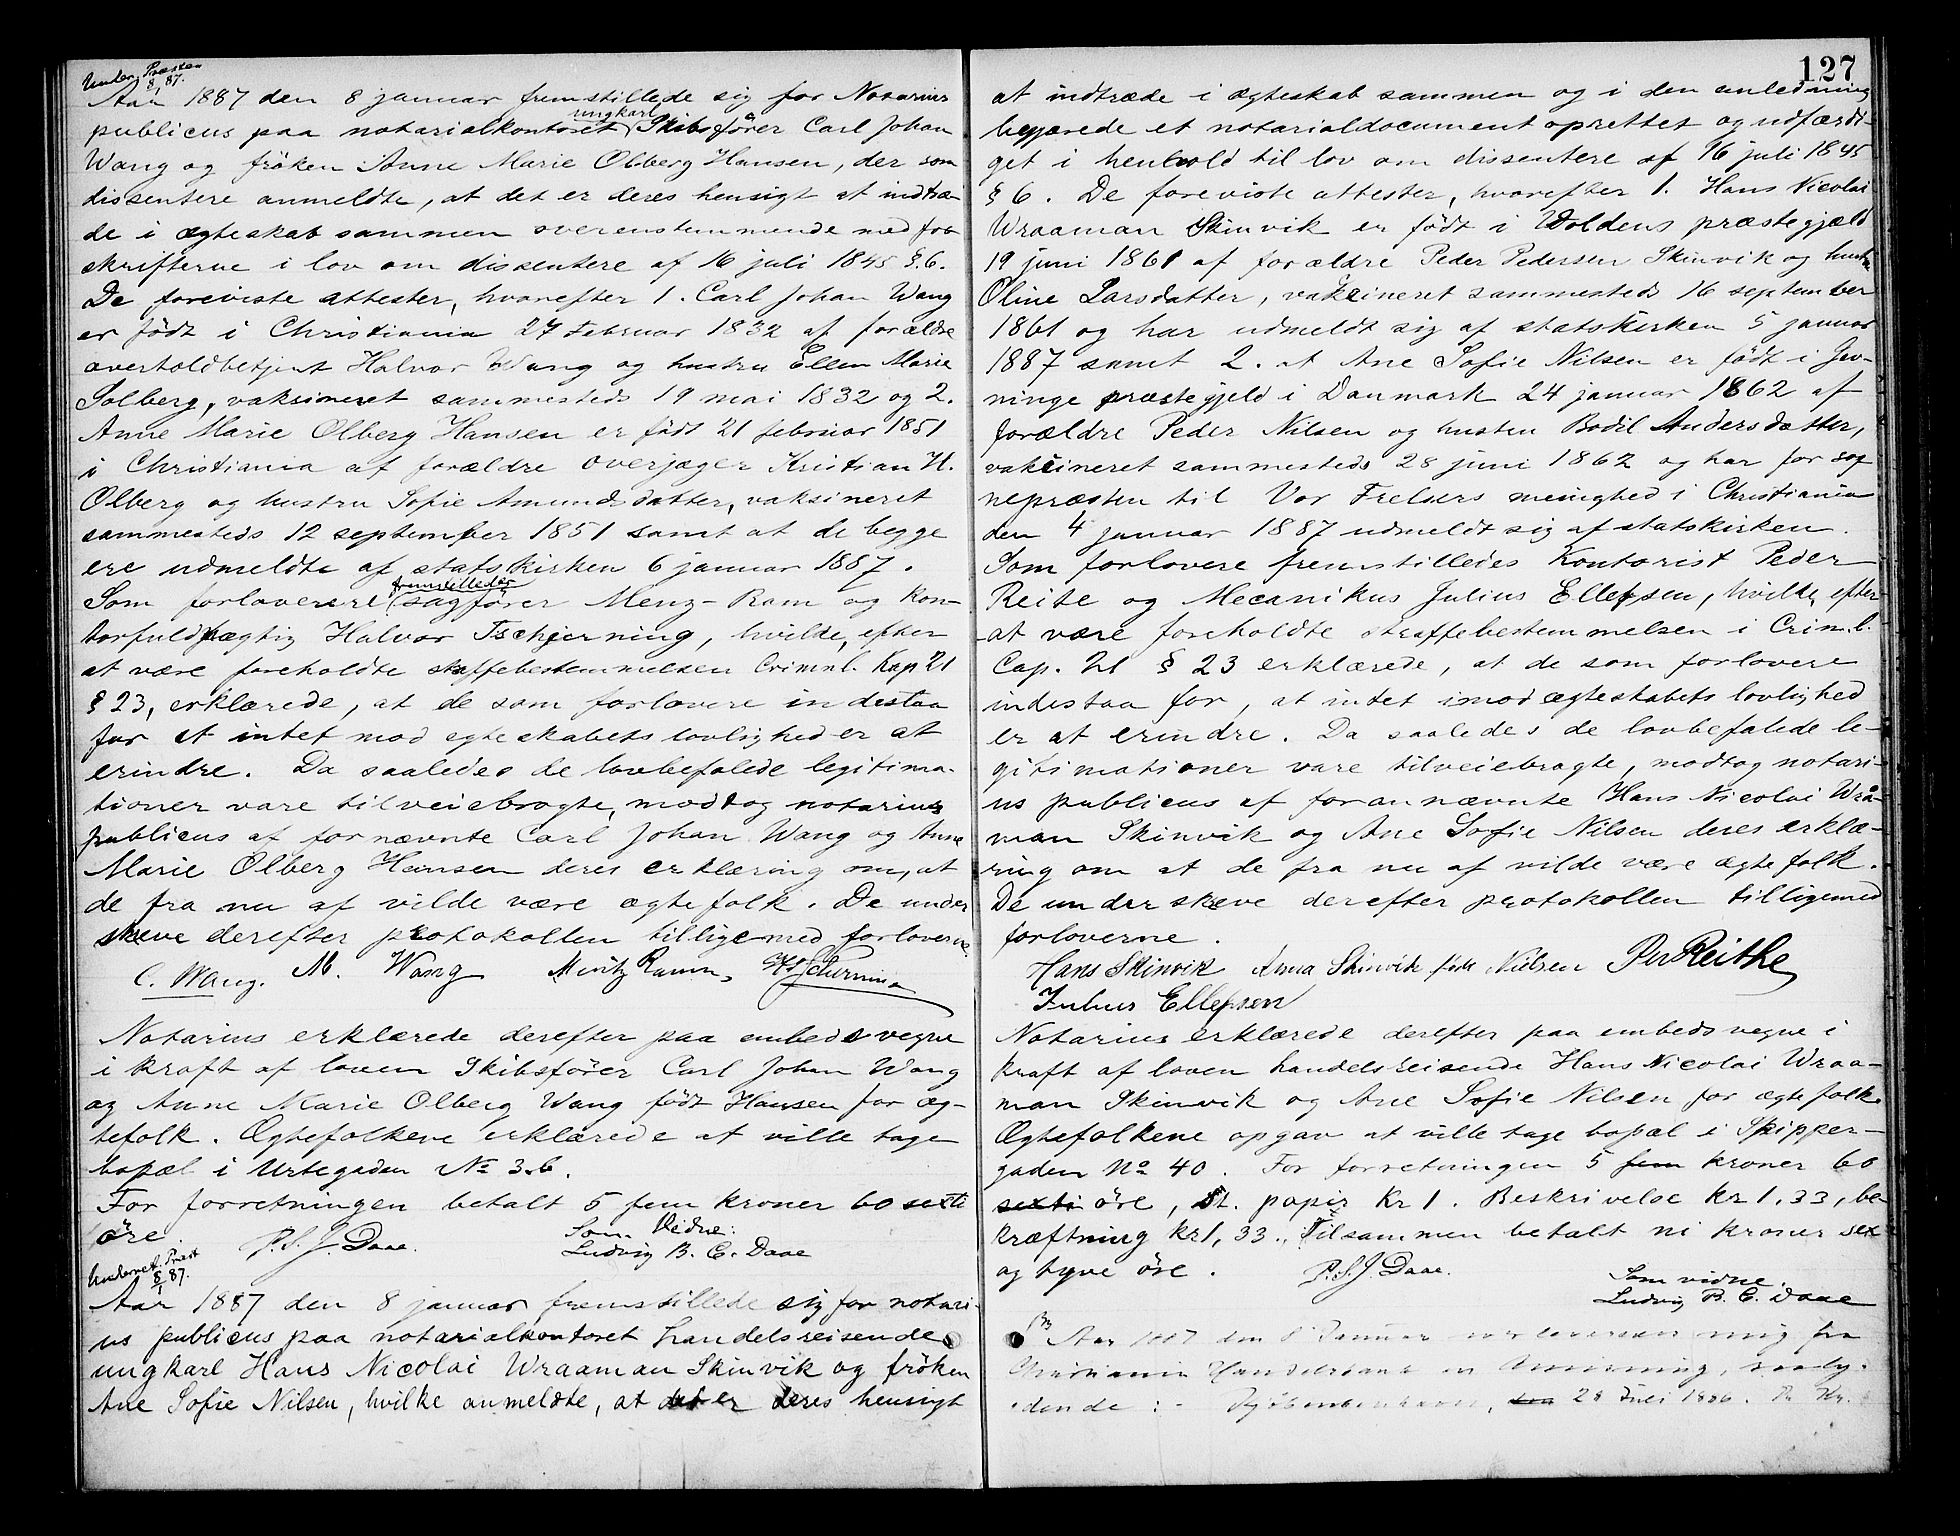 Underr. Præsten
8/1 87.
Aar 1887 den 8 januar fremstillede sig for Notarius
publicus paa notarialkontoret ungkarl Skibsfører Carl Johan
Wang og frøken Anne Marie Olberg Hansen, der som
dissentere anmeldte, at det er deres hensigt at indtræ-
de i ægteskab sammen overenstemmende med for
skrifterne i lov om dissentere af 16 juli 1845 §.6.
De foreviste attester, hvorefter 1. Carl Johan Wang
er født i Christiania 27 februar 1832 af forældre
overtoldbetjent Halvor Wang og hustru Ellen Marie
Solberg, vaksineret sammesteds 19 mai 1832 og 2.
Anne Marie Olberg Hansen er født 21 februar 1851
i Christiania af forældre overjæger Kristian H.
Olberg og hustru Sofie Amundsdatter, vaksineret
sammesteds 12 september 1851 samt at de begge
ere udmeldte af statskirken 6 januar 1887.
Som forlovere fremstilledes sagfører Menz-Ram og kon-
torfuldmægtig Halvor Tschjerning, hvilke, efter
at være foreholdte straffebestemmelsen Criml. Kap 21
§ 23, erklærede, at de som forlovere indestaa
for at intet mod egteskabets lovlighed er at
erindre. Da saaledes de lovbefalede legitima-
tioner vare tilveiebragte, modtog notarius
publicus af fornævnte Carl Johan Wang og Anne
Marie Olberg Hansen deres erklæring om, at
de fra nu af vilde være ægtefolk. De under
skreve derefter protokollen tilligemed forloverne
C. Wang. M. Wang Møritz Ramm,
Notarius erklærede derefter paa embeds vegne
i kraft af loven Skibsfører Carl Johan Wang
og Anne Marie Olberg Wang født Hansen for æg-
tefolk. Ægtefolkene erklærede at ville tage
bopæl i Urtegaden No 36.
For forretningen betalt 5 fem kroner 60 sexti
øre.
P.S.J. Daae. Som Vidne:
Ludvig B. C. Daae
Underret. Præst
8/1 87.
Aar 1887 den 8 januar fremstillede sig for notari-
us publicus paa notarialkontoret handelsreisende
ungkarl Hans Nicolai Wraaman Skinvik og frøken
Ane Sofie Nilsen, hvilke anmeldte, at det er deres hensigt
127
at indtræde i ægteskab sammen og i den anledning
begjærede et notarialdocument oprettet og udfærdi-
get i henhold til lov om dissentere af 16 juli 1845
§ 6. De foreviste attester, hvorefter 1. Hans Nicolai
Wraaman Skinvik er født i Woldens præstegjæld
19 juni 1861 af forældre Peder Pedersen Skinvik og hustru
Oline Larsdatter, vakcineret sammesteds 16 september
1861 og har udmeldt sig af statskirken 5 januar
1887 samt 2. at Ane Sofie Nilsen er født i Jev-
ninge præstegjeld i Danmark 24 januar 1862 af
forældre Peder Nilsen og hustru Bodil Andersdatter,
vakcineret sammesteds 28 juni 1862 og har for sog
nepræsten til Vor Frelsers menighed i Christiania
den 4 januar 1887 udmeldt sig af statskirken.
Som forlovere fremstilledes Kontorist Peder
Reite og Mecanikus Julius Ellefsen, hvilke, efter
at være foreholdte straffebestemmelsen i Crim.l.
Cap. 21 § 23 erklærede, at de som forlovere
indestaa for, at intet imod ægteskabets lovlighed
er at erindre. Da saaledes de lovbefalede le-
gitimationer vare tilveiebragte, modtog notari-
us publicus af forannævnte Hans Nicolai Wraa-
man Skinvik og Ane Sofie Nilsen deres erklæ-
ring om at de fra nu af vilde være ægtefolk.
De underskreve derefter protokollen tilligemed
forloverne.
Hans Skinvik Anna Skinvik født Nielsen PReithe
Julius Ellefsen
Notarius erklærede derefter paa embeds vegne i
kraft af loven handelsreisende Hans Nicolai Wraa-
man Skinvik og Ane Sofie Nilsen for ægtefolk.
Ægtefolkene opgav at ville tage bopæl i Skipper-
gaden No 40. For forretningen 5 fem kroner 60
sexti øre, St. papir Kr 1. Beskrivelse kr 1,33, be-
kræftning kr 1,33. Tilsammen betalt ni kroner sex
og tyve øre.
P.S.J. Daae. Som vidne.
Ludvig B. C. Daae
Aar 1887 den 8 Januar mig fra
Christiania Handelsbank en Anvisning,
dende: - Kjøbenhavn, den 28 Juli 1886.